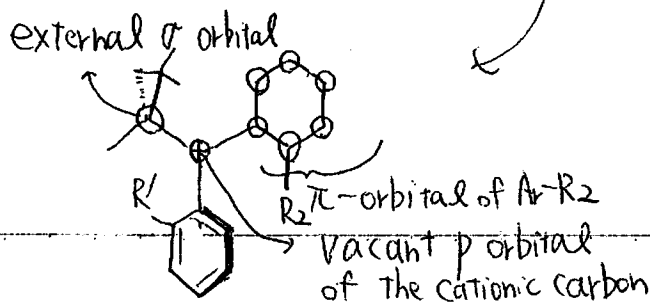 external σ orbital
R'
R2
π-orbital of Ar-R2
vacant p orbital
of the cationic carbon